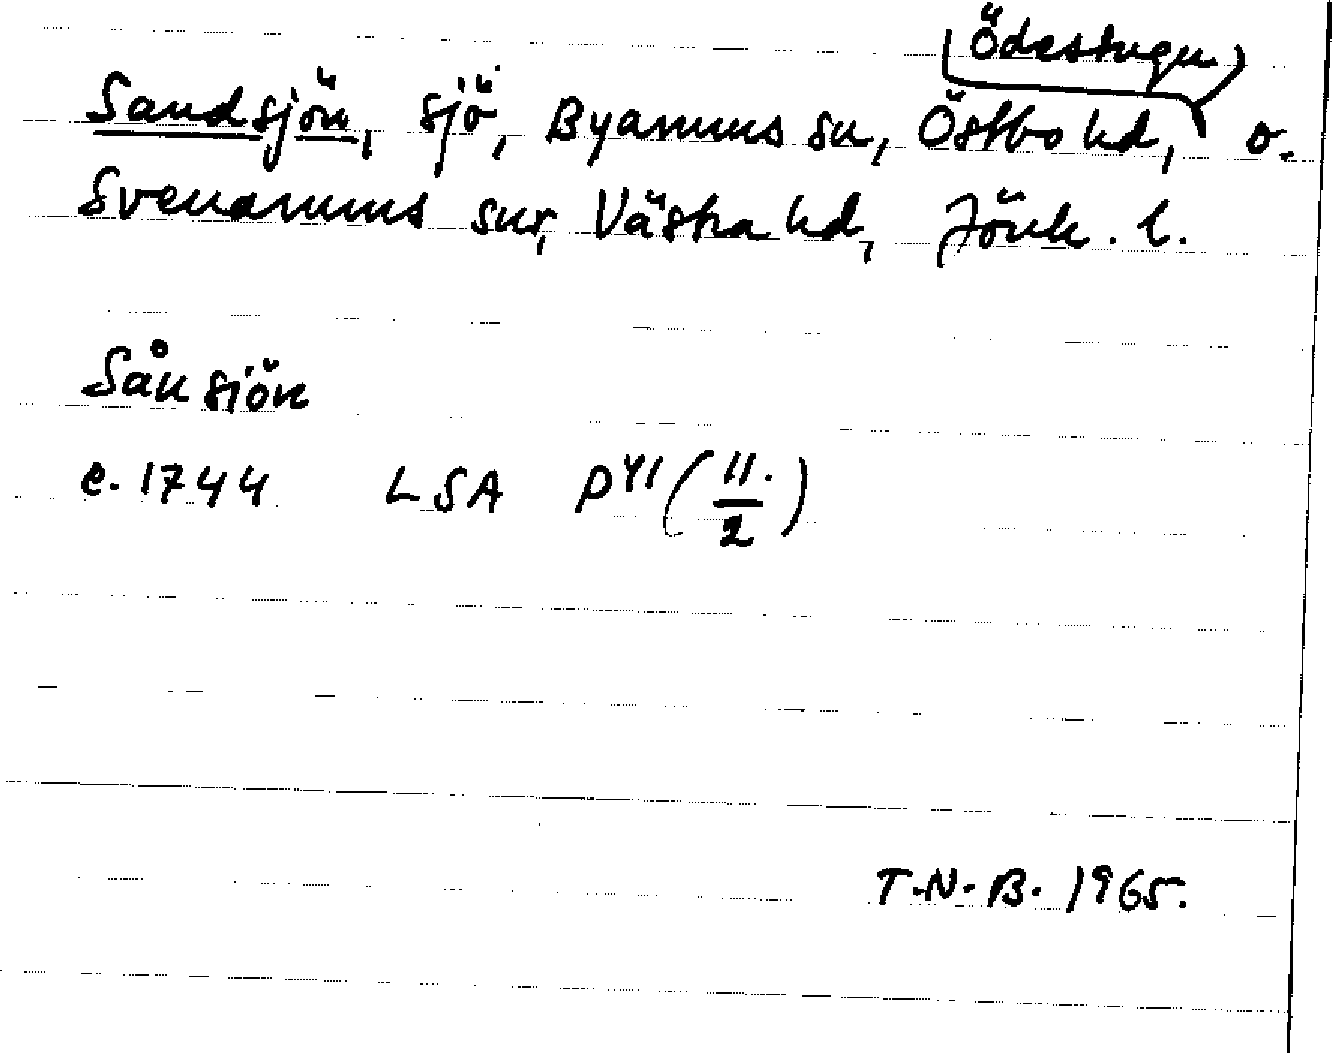 (Ödestugu)
Sandsjön, sjö, Byarums sn, Östbo hd, o.
Svenarums snr, Västra hd, Jönk. l.
Sånsjön
c. 1744 LSA P41 (11./2)
T.N.B. 1965.